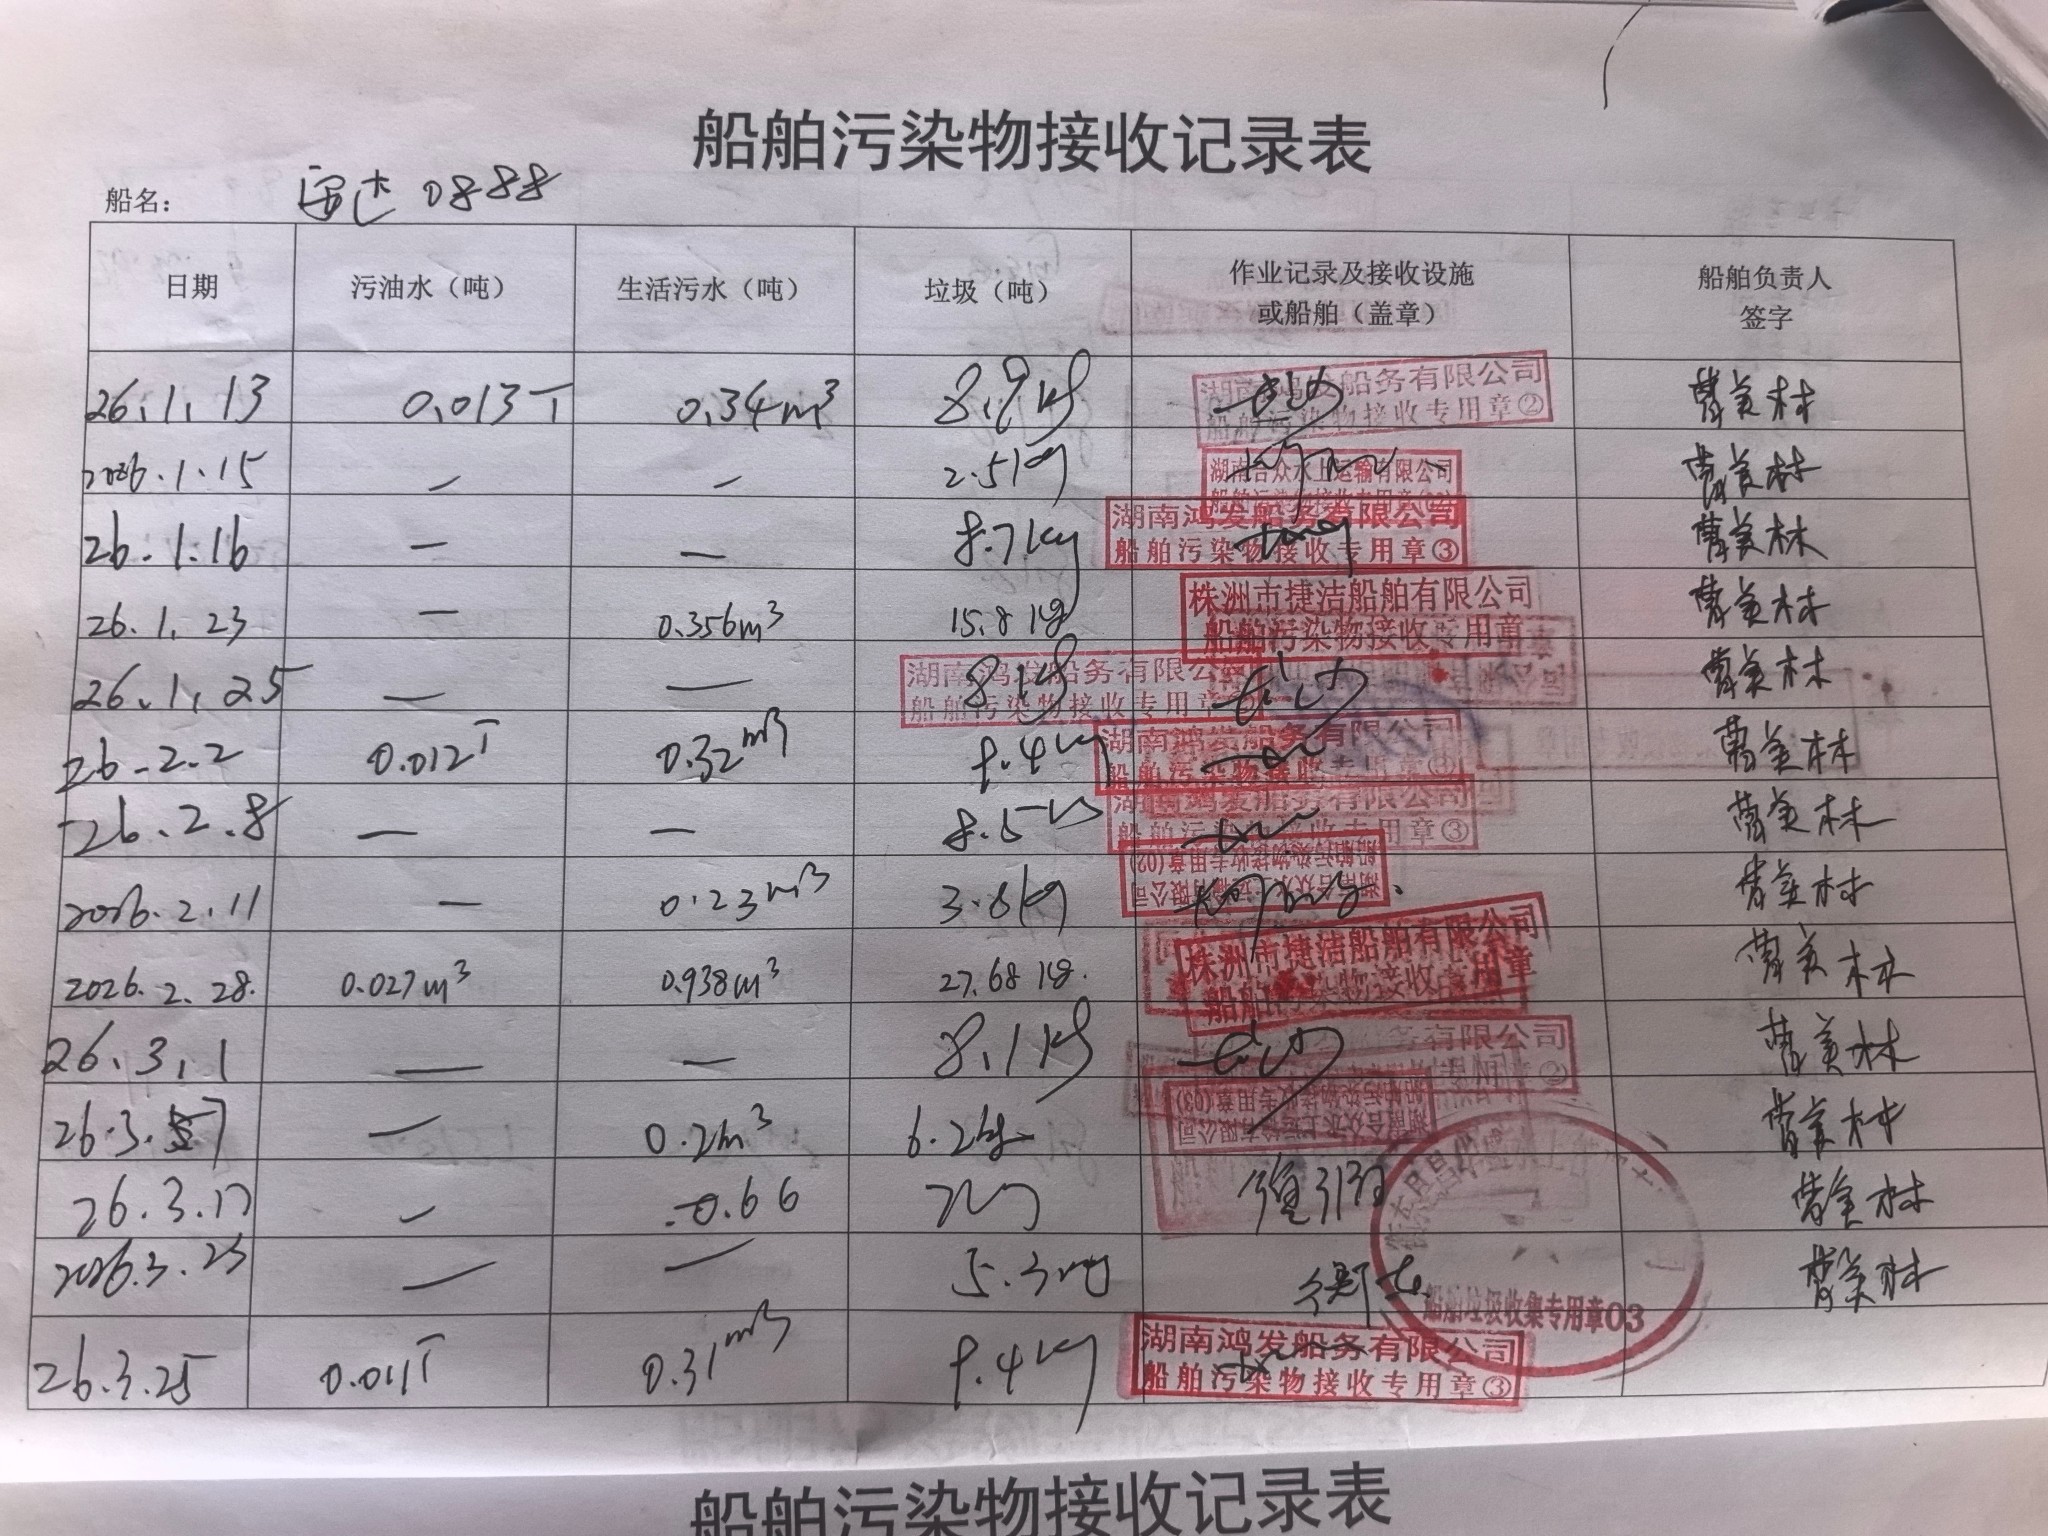 船舶污染物接收记录表
船名： 0888
日期 污油水（吨） 生活污水（吨） 垃圾（吨） 作业记录及接收设施或船舶（盖章） 船舶负责人签字
26.1.13 0.013T 0.34m³ 8.9kg 湖南鸿发船务有限公司 船舶污染物接收专用章② 曹美林
2026.1.15 — — 2.5kg 湖南合众水上运输有限公司 曹美林
26.1.16 — — 8.7kg 湖南鸿发船务有限公司 船舶污染物接收专用章③ 曹美林
26.1.23 — 0.356m³ 15.8kg 株洲市捷洁船舶有限公司 船舶污染物接收专用章 曹美林
26.1.25 — — 8kg 湖南鸿发船务有限公司 船舶污染物接收专用章 曹美林
26.2.2 0.012T 0.32m³ 9.4kg 湖南鸿发船务有限公司 船舶污染物接收专用章 曹美林
26.2.8 — — 8.5kg 湖南鸿发船务有限公司 船舶污染物接收专用章③ 曹美林
2026.2.11 — 0.23m³ 3.8kg 湖南合众水上运输有限公司 船舶污染物接收专用章(02) 曹美林
2026.2.28. 0.027m³ 0.938m³ 27.68kg. 株洲市捷洁船舶有限公司 船舶污染物接收专用章 曹美林
26.3.1 — — 8.1kg 船务有限公司 曹美林
26.3.7 — 0.2m³ 6.2kg 湖南合众水上运输有限公司 船舶污染物接收专用章(03) 曹美林
26.3.17 — 0.66 曹美林
2026.3.23 — — 5.3kg 船舶垃圾收集专用章03 曹美林
26.3.25 0.011T 0.31m³ 9.4kg 湖南鸿发船务有限公司 船舶污染物接收专用章③
船舶污染物接收记录表